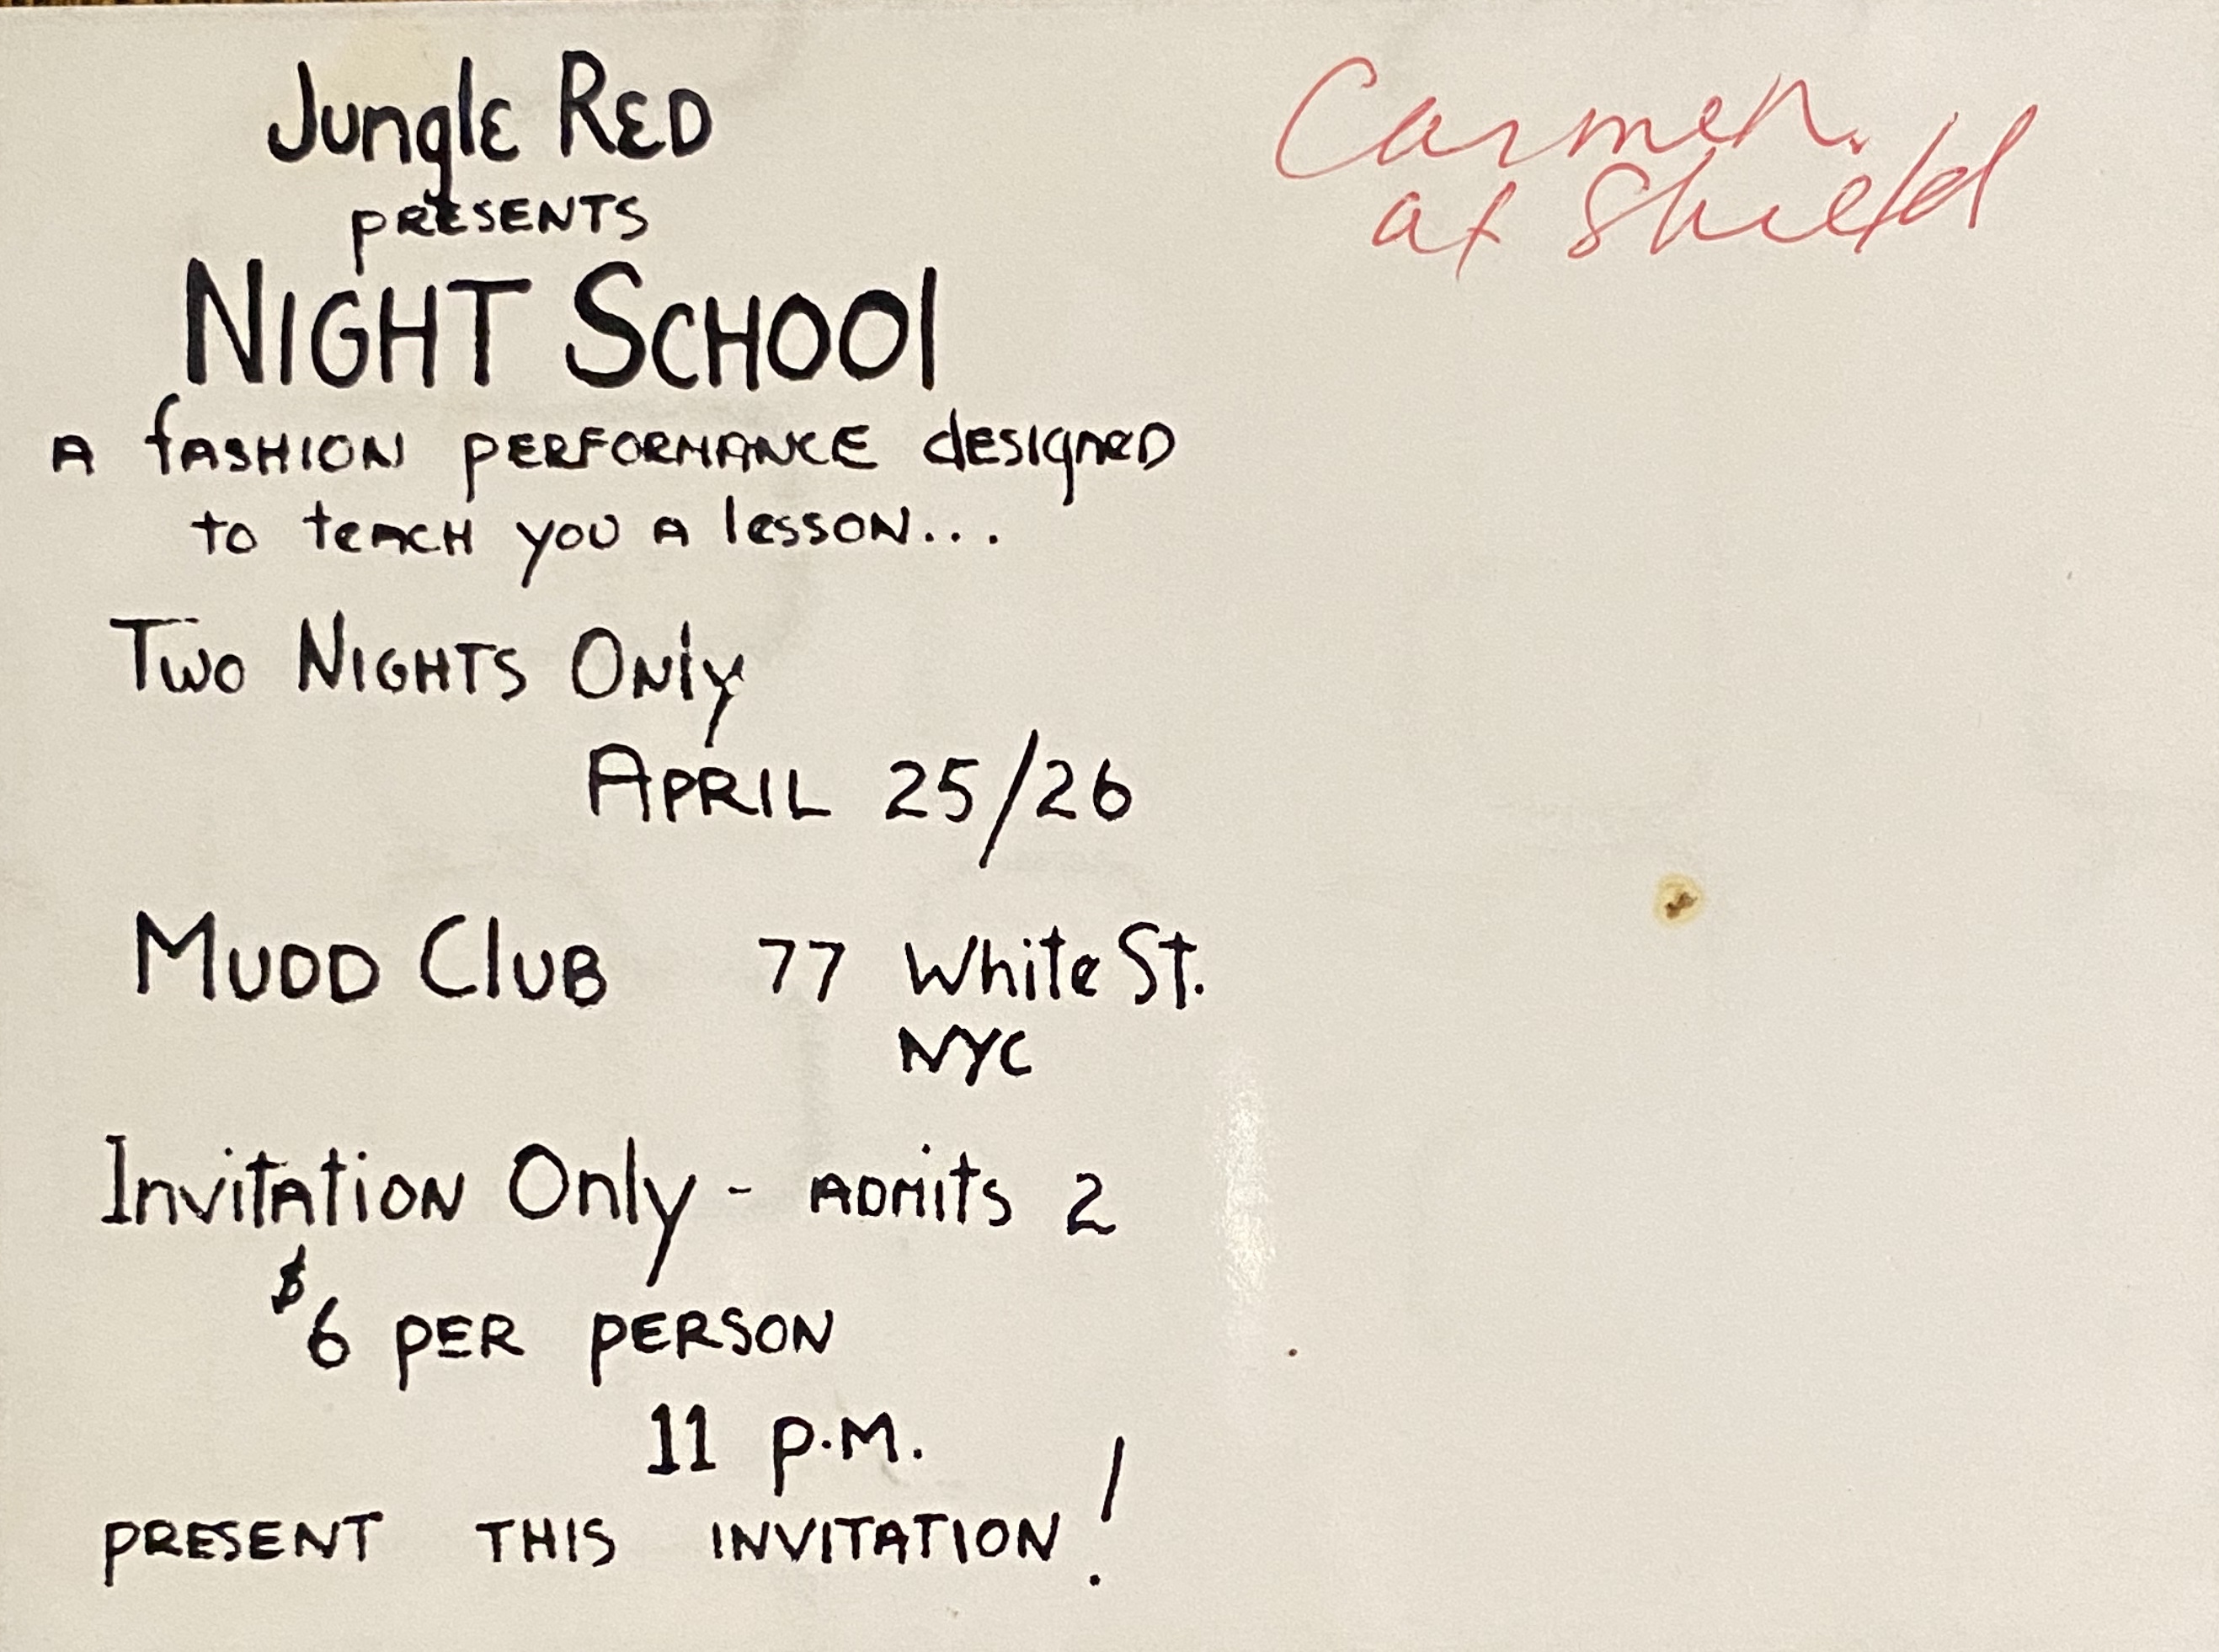 Jungle Red
presents
Night School
A fashion performance designed
to teach you a lesson...
Two Nights Only
April 25/26
Mudd Club 77 White St.
NYC
Invitation Only - admits 2
$6 per person
11 p.m.
present this invitation!
Carmen.
at Shield